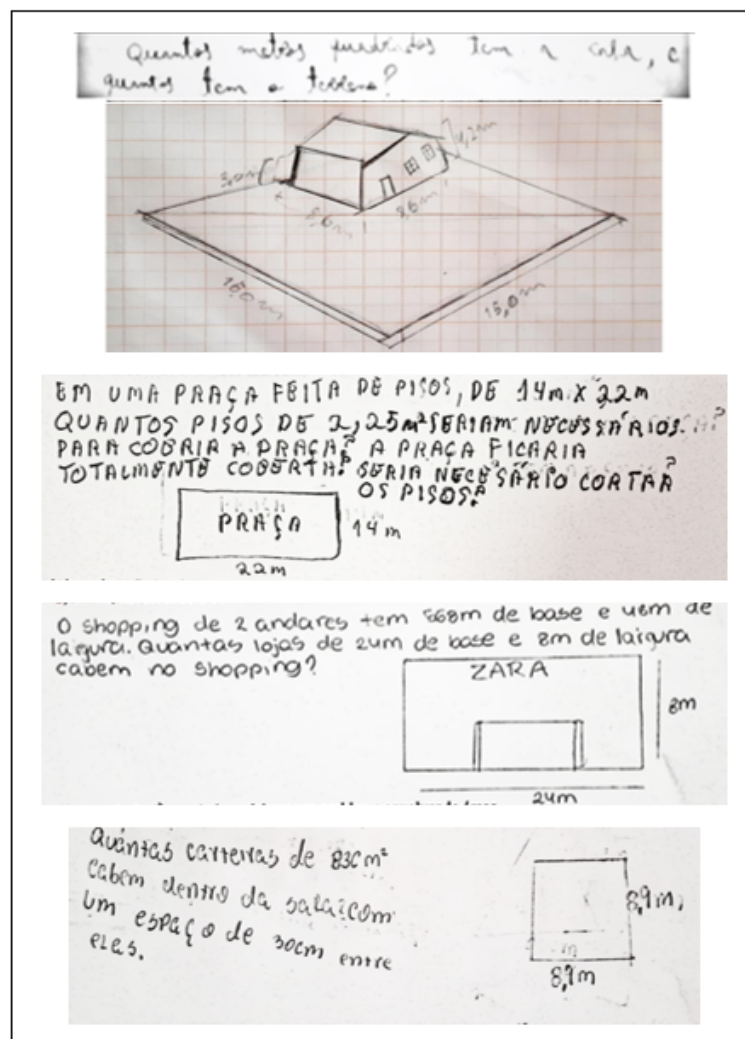 Quantos metros quadrados tem a casa, e
quantos tem o terreno?
3,0m
4,2m
8,6m
15,0m
15,0m
EM UMA PRAÇA FEITA DE PISOS, DE 14m X 22m
QUANTOS PISOS DE 2,25m² SERIAM NECESSÁRIOS
PARA COBRIR A PRAÇA? A PRAÇA FICARIA
TOTALMENTE COBERTA? SERIA NECESSÁRIO CORTAR
OS PISOS?
PRAÇA
14m
22m
O shopping de 2 andares tem 568m de base e 48m de
largura. Quantas lojas de 24m de base e 8m de largura
cabem no shopping?
ZARA
8m
24m
Quantas carteiras de
cabem dentro da sala com
um espaço de 30cm entre
eles.
8,9m
8,9m